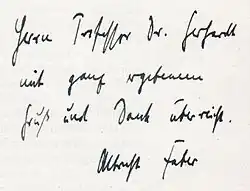 Herrn Professor Dr. Gerhardt
mit ganz ergebenem
Gruß und Dank überreicht.
Albrecht Faber